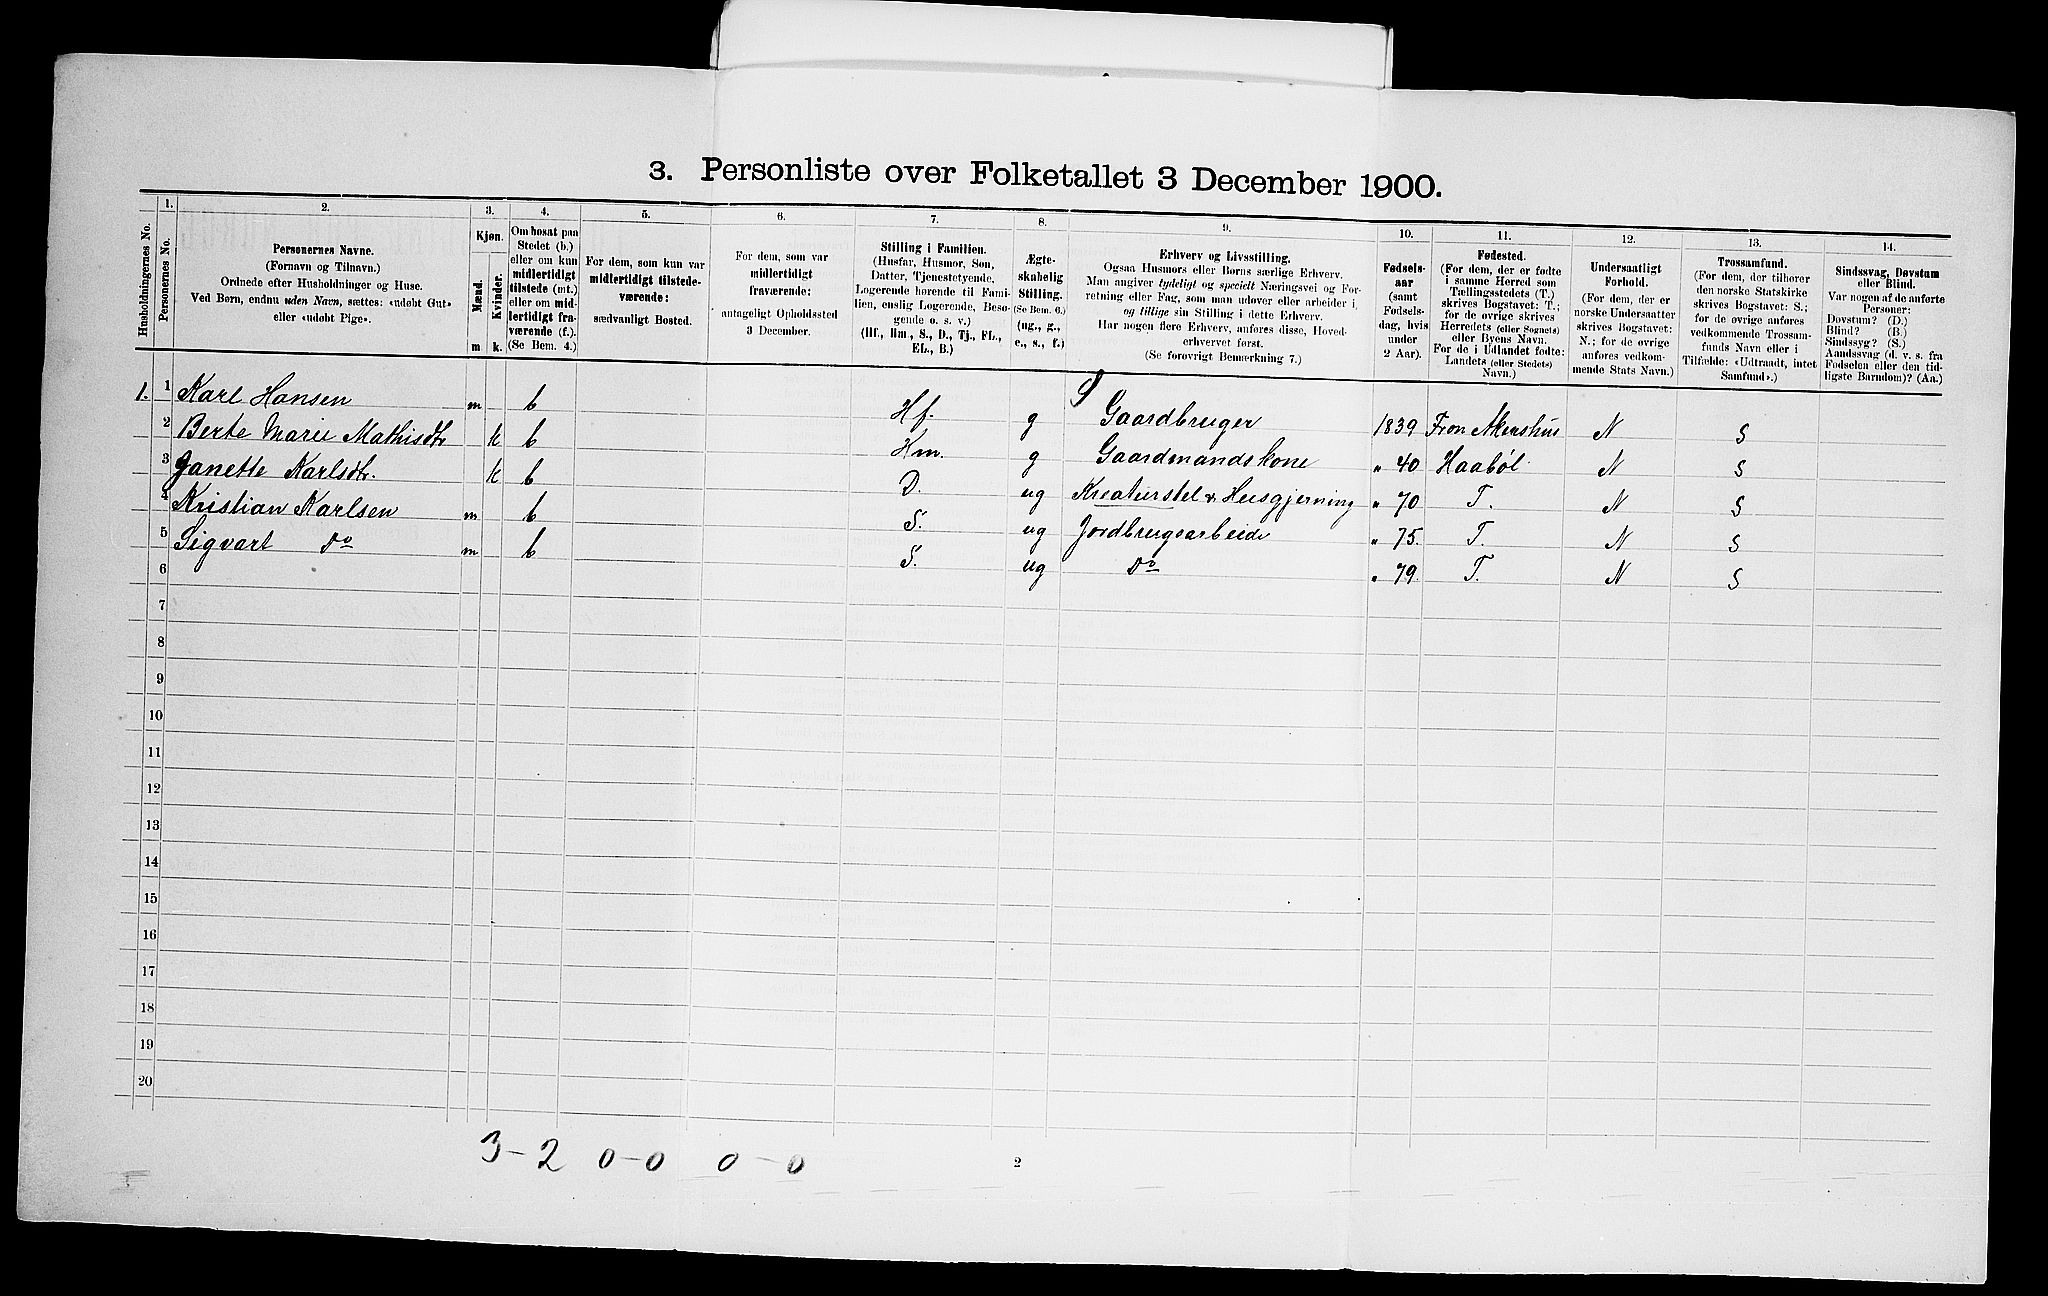 3. Personliste over Folketallet 3 December 1900.
Husholdningernes No.
1.
Personernes No.
2.
Personernes Navne.
(Fornavn og Tilnavn.)
Ordnede efter Husholdninger og Huse.
Ved Børn, endnu uden Navn, sættes: «udøbt Gut»
eller «udøbt Pige».
3.
Kjøn.
Mænd.
Kvinder.
m k.
4.
Om bosat paa
Stedet (b.)
eller om kun
midlertidigt
tilstede (mt.)
eller om mid-
lertidigt fra-
værende (f.).
(Se Bem. 4.)
5.
For dem, som kun var
midlertidigt tilstede-
værende:
sædvanligt Bosted.
6.
For dem, som var
midlertidigt
fraværende:
antageligt Opholdssted
3 December.
7.
Stilling i Familien.
(Husfar, Husmor, Søn,
Datter, Tjenestetyende,
Logerende hørende til Fami-
lien, enslig Logerende, Besø-
gende o. s. v.)
(Hf., Hm., S., D., Tj., FL.,
EL., B.)
8.
Ægte-
skabelig
Stilling.
(Se Bem. 6.)
(ug., g.,
e., s., f.)
9.
Erhverv og Livsstilling.
Ogsaa Husmors eller Børns særlige Erhverv.
Man angiver tydeligt og specielt Næringsvei og For-
retning eller Fag, som man udøver eller arbeider i,
og tillige sin Stilling i dette Erhverv.
Har nogen flere Erhverv, anføres disse, Hoved-
erhvervet først.
(Se forøvrigt Bemerkning 7.)
10.
Fødsels-
aar
(samt
Fødsels-
dag, hvis
under
2 Aar).
11.
Fødested.
(For dem, der er fødte
i samme Herred som
Tællingsstedets (T.)
skrives Bogstavet: T.;
for de øvrige skrives
Herredets (eller Sognets)
eller Byens Navn.
For de i Udlandet fødte:
Landets (eller Stedets)
Navn.)
12.
Undersaatligt
Forhold.
(For dem, der er
norske Undersaatter
skrives Bogstavet:
N.; for de øvrige
anføres vedkom-
mende Stats Navn.)
13.
Trossamfund.
(For dem, der tilhører
den norske Statskirke
skrives Bogstavet: S.;
for de øvrige anføres
vedkommende Trossam-
funds Navn eller i
Tilfælde: «Udtraadt, intet
Samfund».)
14.
Sindssvag, Døvstum
eller Blind.
Var nogen af de anførte
Personer:
Døvstum? (D.)
Blind? (B.)
Sindssyg? (S.)
Aandssvag (d. v. s. fra
Fødselen eller den tid-
ligste Barndom)? (Aa.)
1. 1 Karl Hansen m b Hf. g Gaardbruger 1839 Fron Akershus N S
2 Berte Marie Mathisdtr k b Hm. g Gaardmandskone " 40 Haabøl N S
3 Janette Karlsdtr. k b D. ug Kreaturstel & Husgjerning " 70 T. N S
4 Kristian Karlsen m b S. ug Jordbrugsarbeide " 75. T. N S
5 Sigvart Do m b S. ug Do " 79. T. N S
6
7
8
9
10
11
12
13
14
15
16
17
18
19
20
3-2 0-0 0-0
2